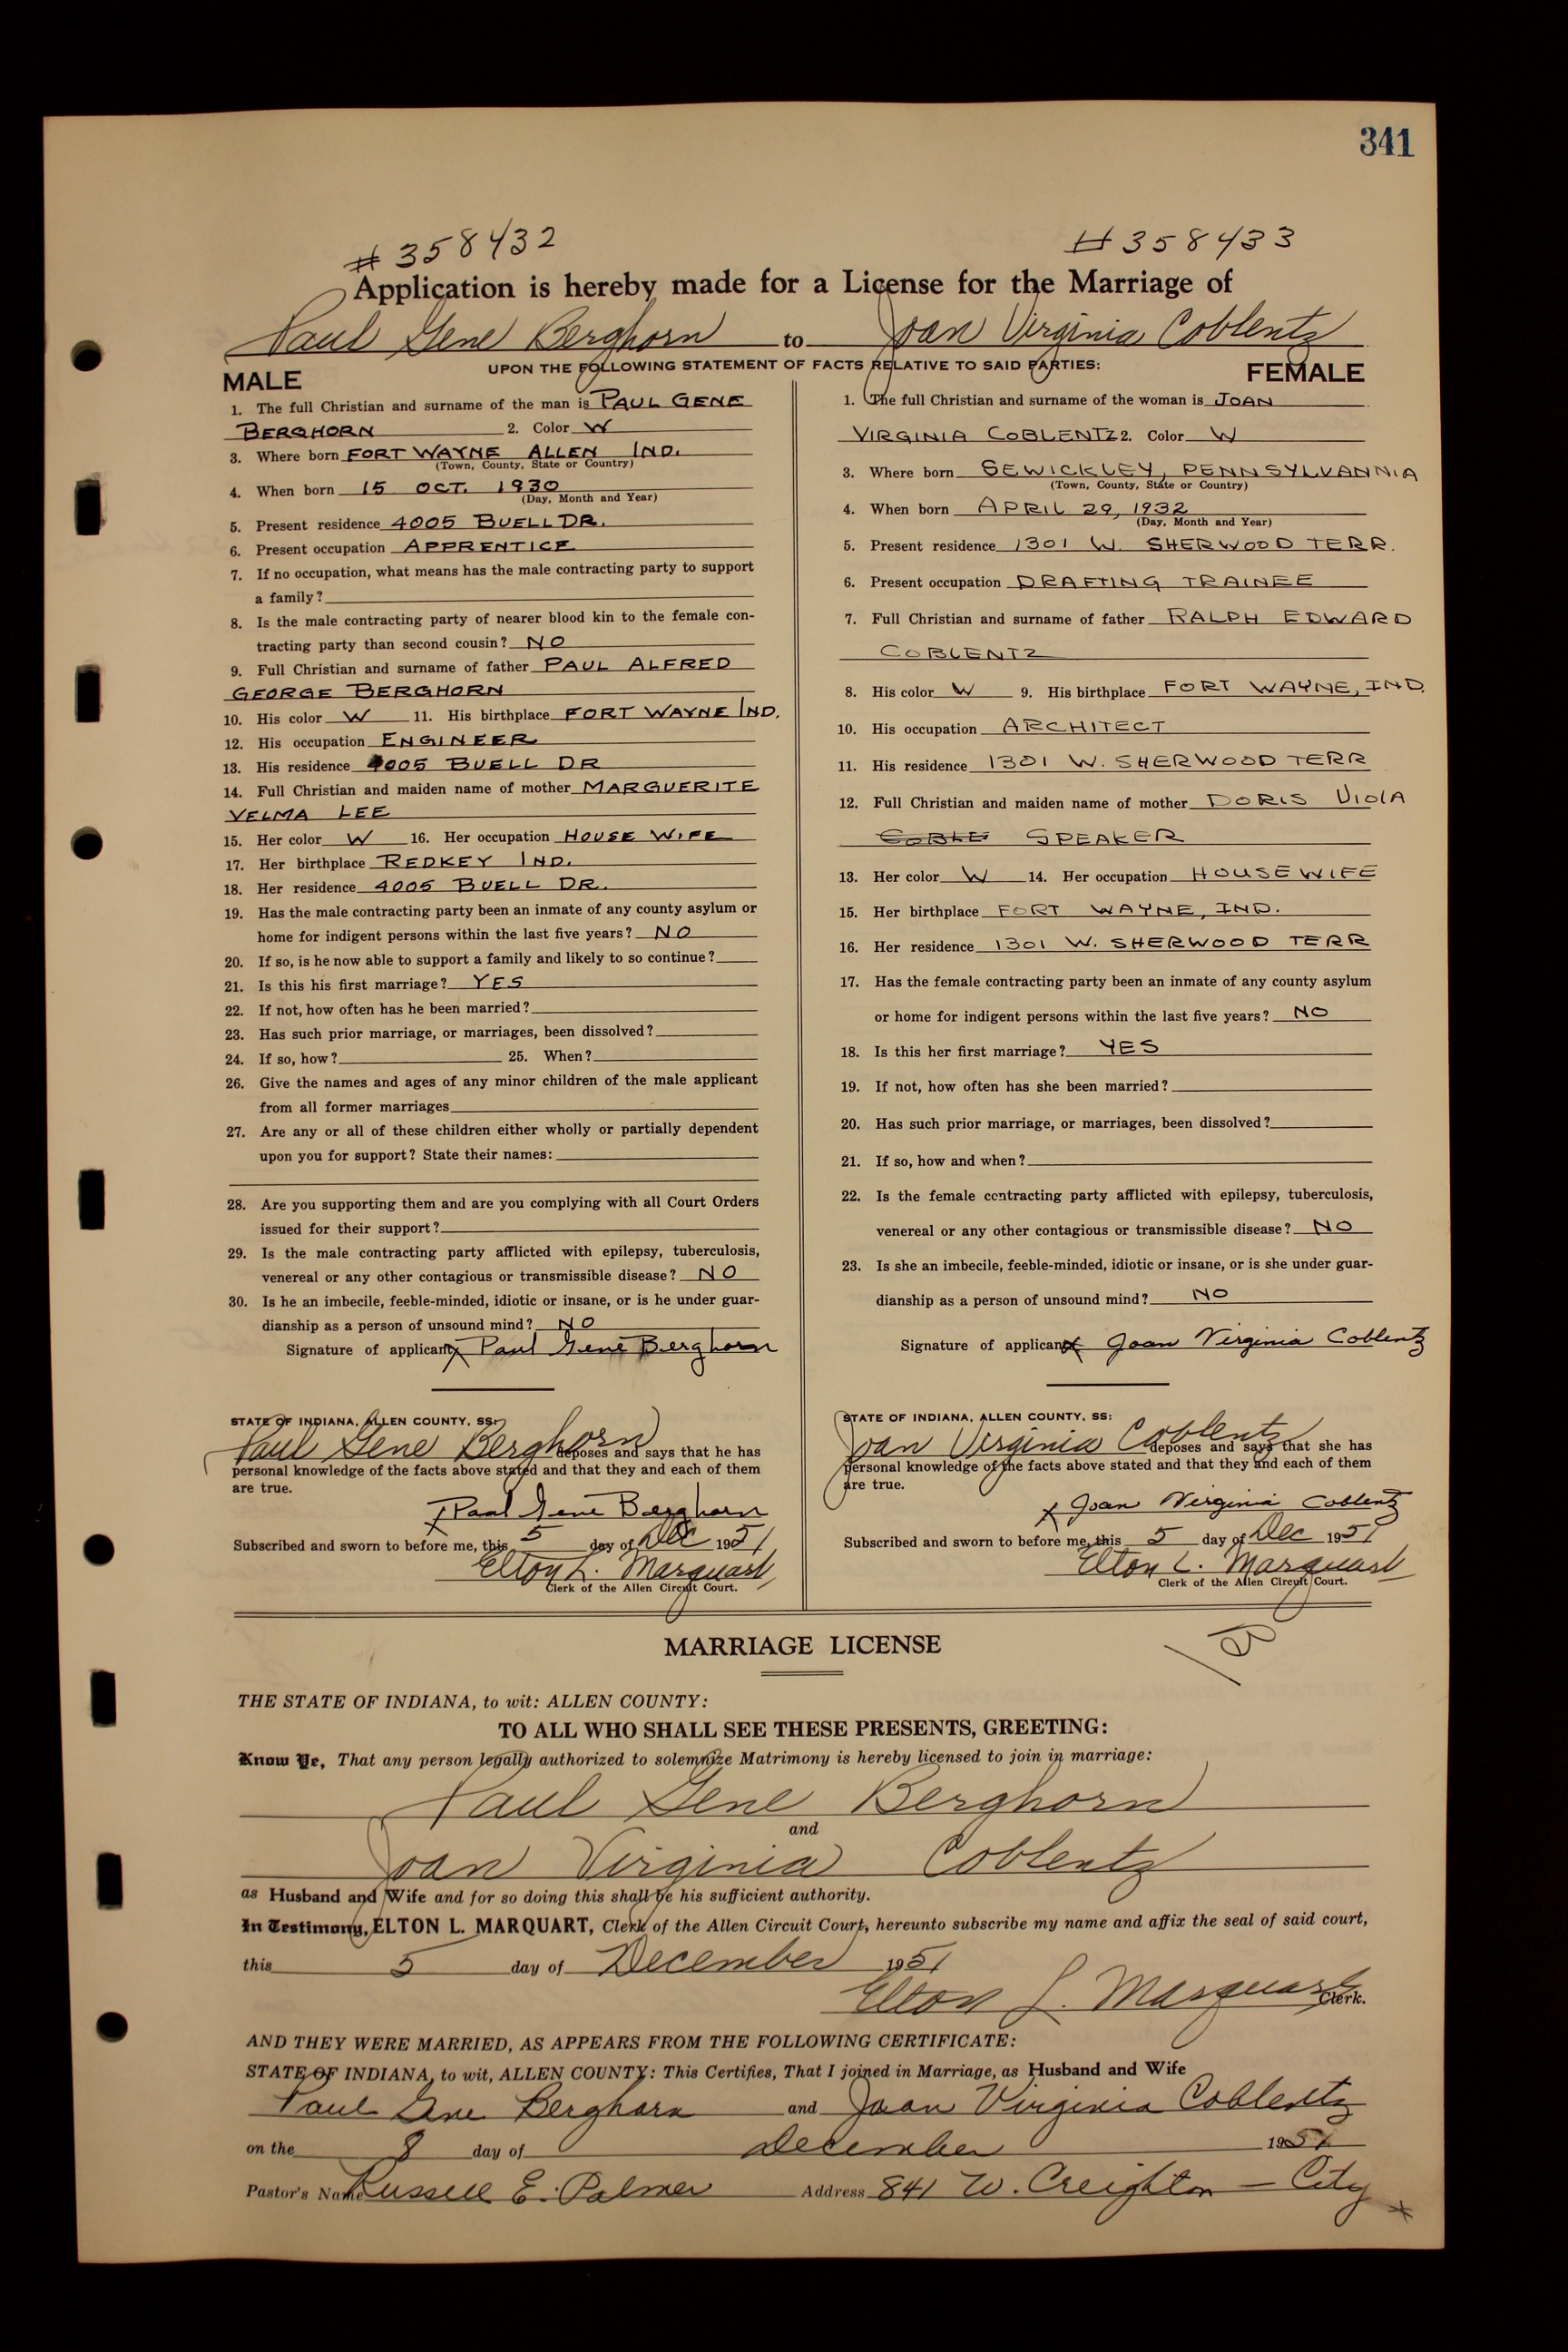 341
# 358432
# 358433
Application is hereby made for a License for the Marriage of
Paul Gene Berghorn to Joan Virginia Coblentz
UPON THE FOLLOWING STATEMENT OF FACTS RELATIVE TO SAID PARTIES:
MALE
1. The full Christian and surname of the man is PAUL GENE
BERGHORN 2. Color W
3. Where born FORT WAYNE ALLEN IND.
(Town, County, State or Country)
4. When born 15 OCT. 1930
(Day, Month and Year)
5. Present residence 4005 BUELL DR.
6. Present occupation APPRENTICE
7. If no occupation, what means has the male contracting party to support
a family?
8. Is the male contracting party of nearer blood kin to the female con-
tracting party than second cousin? NO
9. Full Christian and surname of father PAUL ALFRED
GEORGE BERGHORN
10. His color W 11. His birthplace FORT WAYNE IND.
12. His occupation ENGINEER
13. His residence 4005 BUELL DR
14. Full Christian and maiden name of mother MARGUERITE
VELMA LEE
15. Her color W 16. Her occupation HOUSE WIFE
17. Her birthplace REDKEY IND.
18. Her residence 4005 BUELL DR.
19. Has the male contracting party been an inmate of any county asylum or
home for indigent persons within the last five years? NO
20. If so, is he now able to support a family and likely to so continue?
21. Is this his first marriage? YES
22. If not, how often has he been married?
23. Has such prior marriage, or marriages, been dissolved?
24. If so, how? 25. When?
26. Give the names and ages of any minor children of the male applicant
from all former marriages
27. Are any or all of these children either wholly or partially dependent
upon you for support? State their names:
28. Are you supporting them and are you complying with all Court Orders
issued for their support?
29. Is the male contracting party afflicted with epilepsy, tuberculosis,
venereal or any other contagious or transmissible disease? NO
30. Is he an imbecile, feeble-minded, idiotic or insane, or is he under guar-
dianship as a person of unsound mind? NO
Signature of applicant x Paul Gene Berghorn
STATE OF INDIANA, ALLEN COUNTY, SS:
Paul Gene Berghorn deposes and says that he has
personal knowledge of the facts above stated and that they and each of them
are true.
x Paul Gene Berghorn
Subscribed and sworn to before me, this 5 day of Dec 1951
Elton L. Marquart
Clerk of the Allen Circuit Court.
FEMALE
1. The full Christian and surname of the woman is JOAN
VIRGINIA COBLENTZ 2. Color W
3. Where born SEWICKLEY, PENNSYLVANNIA
(Town, County, State or Country)
4. When born APRIL 29, 1932
(Day, Month and Year)
5. Present residence 1301 W. SHERWOOD TERR.
6. Present occupation DRAFTING TRAINEE
7. Full Christian and surname of father RALPH EDWARD
COBLENTZ
8. His color W 9. His birthplace FORT WAYNE, IND.
10. His occupation ARCHITECT
11. His residence 1301 W. SHERWOOD TERR
12. Full Christian and maiden name of mother DORIS VIOLA
COBLE SPEAKER
13. Her color W 14. Her occupation HOUSEWIFE
15. Her birthplace FORT WAYNE, IND.
16. Her residence 1301 W. SHERWOOD TERR
17. Has the female contracting party been an inmate of any county asylum
or home for indigent persons within the last five years? NO
18. Is this her first marriage? YES
19. If not, how often has she been married?
20. Has such prior marriage, or marriages, been dissolved?
21. If so, how and when?
22. Is the female contracting party afflicted with epilepsy, tuberculosis,
venereal or any other contagious or transmissible disease? NO
23. Is she an imbecile, feeble-minded, idiotic or insane, or is she under guar-
dianship as a person of unsound mind? NO
Signature of applicant x Joan Virginia Coblentz
STATE OF INDIANA, ALLEN COUNTY, SS:
Joan Virginia Coblentz deposes and says that she has
personal knowledge of the facts above stated and that they and each of them
are true.
x Joan Virginia Coblentz
Subscribed and sworn to before me, this 5 day of Dec 1951
Elton L. Marquart
Clerk of the Allen Circuit Court.
MARRIAGE LICENSE
THE STATE OF INDIANA, to wit: ALLEN COUNTY:
TO ALL WHO SHALL SEE THESE PRESENTS, GREETING:
Know Ye, That any person legally authorized to solemnize Matrimony is hereby licensed to join in marriage:
Paul Gene Berghorn
and
Joan Virginia Coblentz
as Husband and Wife and for so doing this shall be his sufficient authority.
In Testimony, ELTON L. MARQUART, Clerk of the Allen Circuit Court, hereunto subscribe my name and affix the seal of said court,
this 5 day of December 1951
Elton L. Marquart Clerk.
AND THEY WERE MARRIED, AS APPEARS FROM THE FOLLOWING CERTIFICATE:
STATE OF INDIANA, to wit, ALLEN COUNTY: This Certifies, That I joined in Marriage, as Husband and Wife
Paul Gene Berghorn and Joan Virginia Coblentz
on the 8 day of December 1951
Pastor's Name Russell E. Palmer Address 841 W. Creighton - City